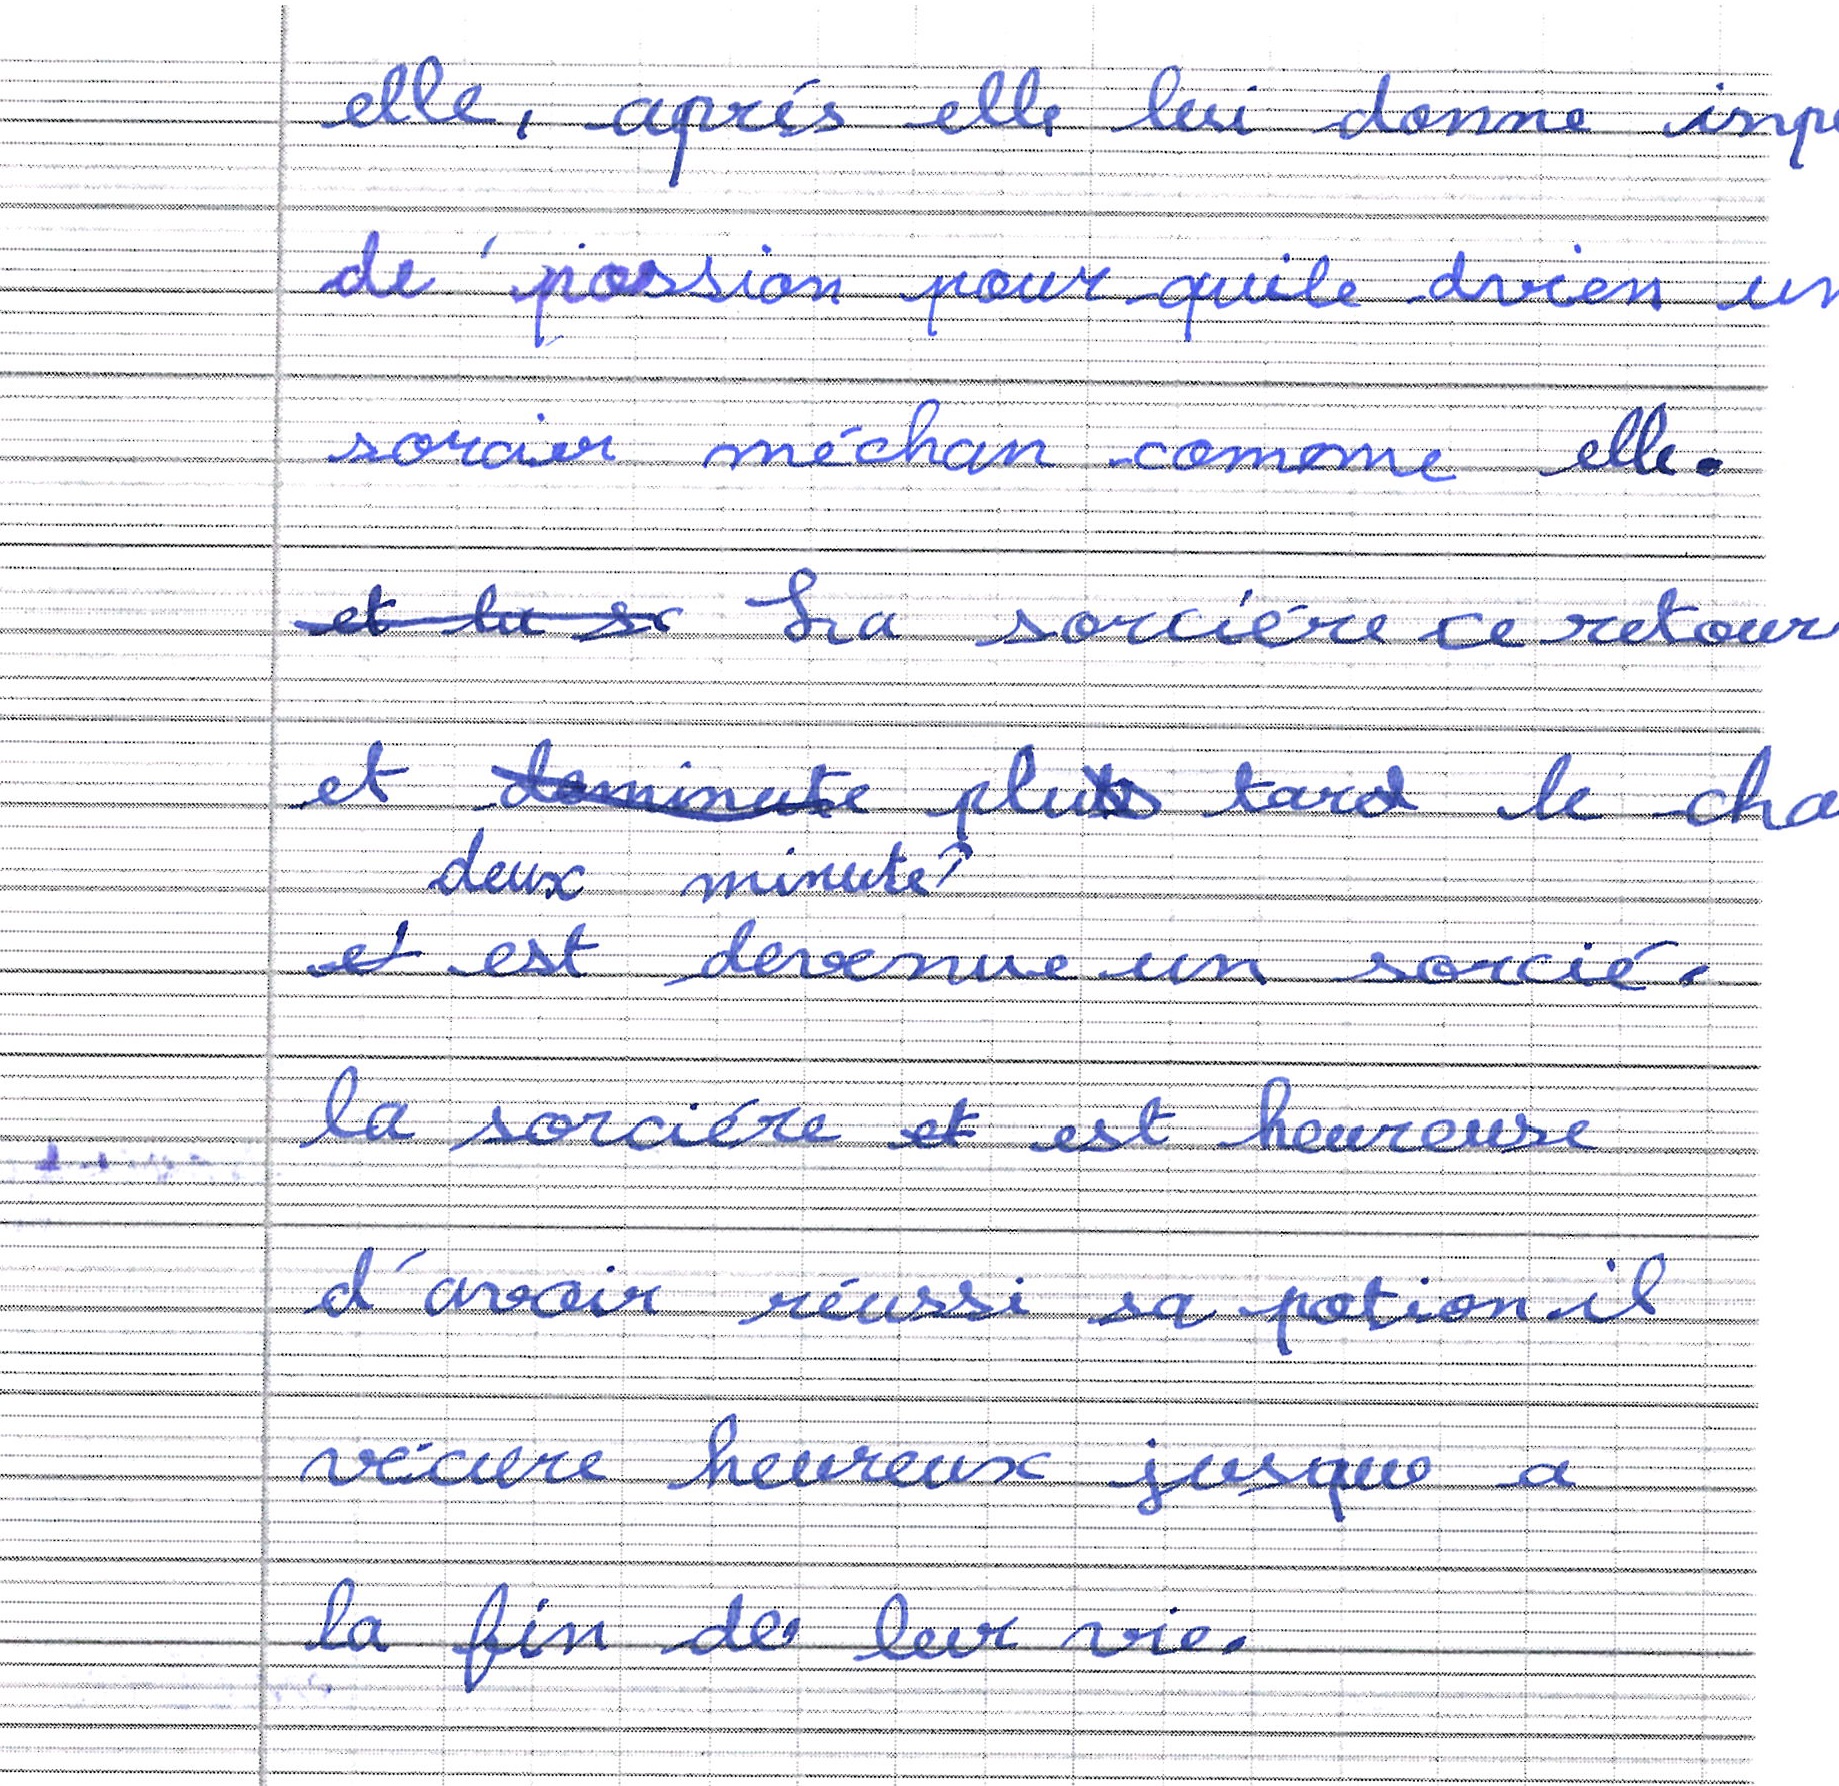 elle, aprés elle lui donne inpe
de possion pour quile dvien un
sorcier méchan comome elle.
et la so La sorciére ce retour
et deminute plus tard le cha
deux minute
et est devenue un sorcié.
la sorciére et est heureuse
d'avoir réussi sa potion il
vécure heureux jusque a
la fin de leur vie.